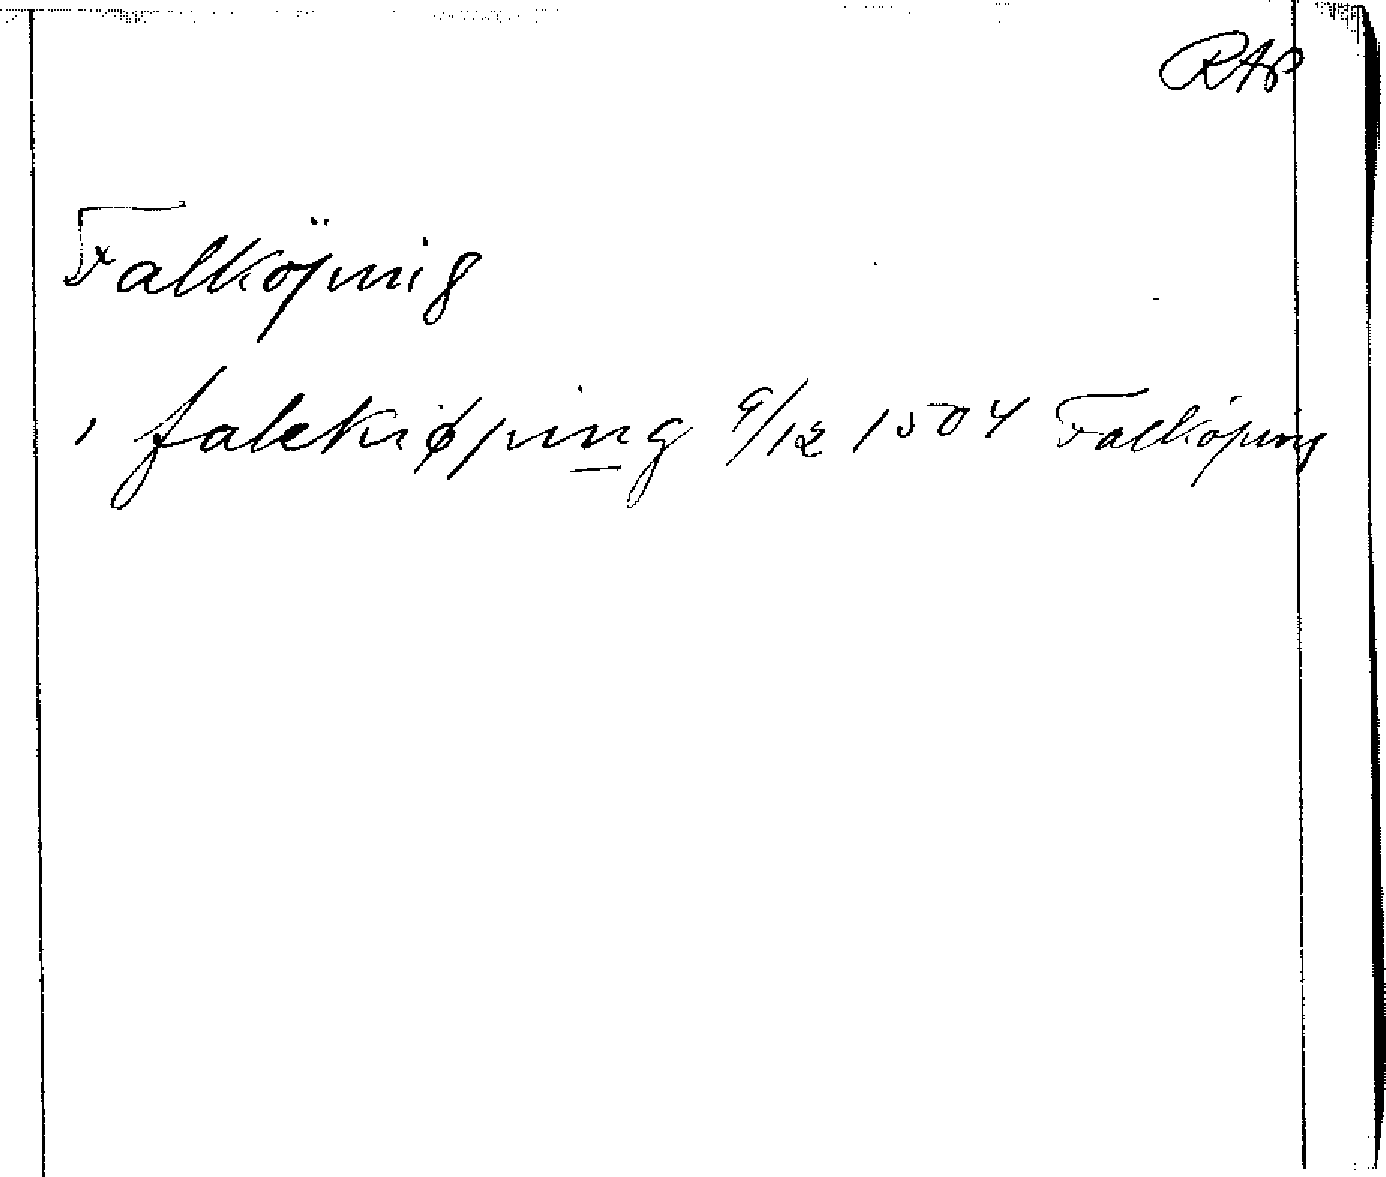 RAP
Falköping
i falekiøping 9/12 1504 Falköping